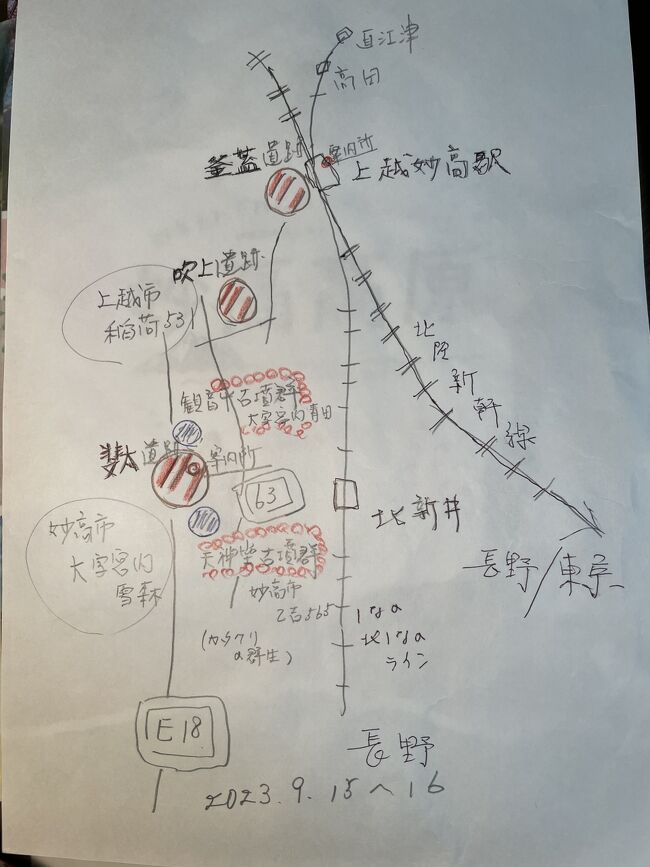 直江津
高田
釜蓋遺跡
案内所
上越妙高駅
吹上遺跡
上越市
稲荷531
北
陸
新
幹
線
観音平古墳群
大字宮内青田
斐太遺跡
案内所
63
北新井
妙高市
大字宮内
雪森
天神堂古墳群
妙高市
乙吉565
(カタクリ
の群生)
ライン
長野/東京
E18
長野
2023.9.15〜16